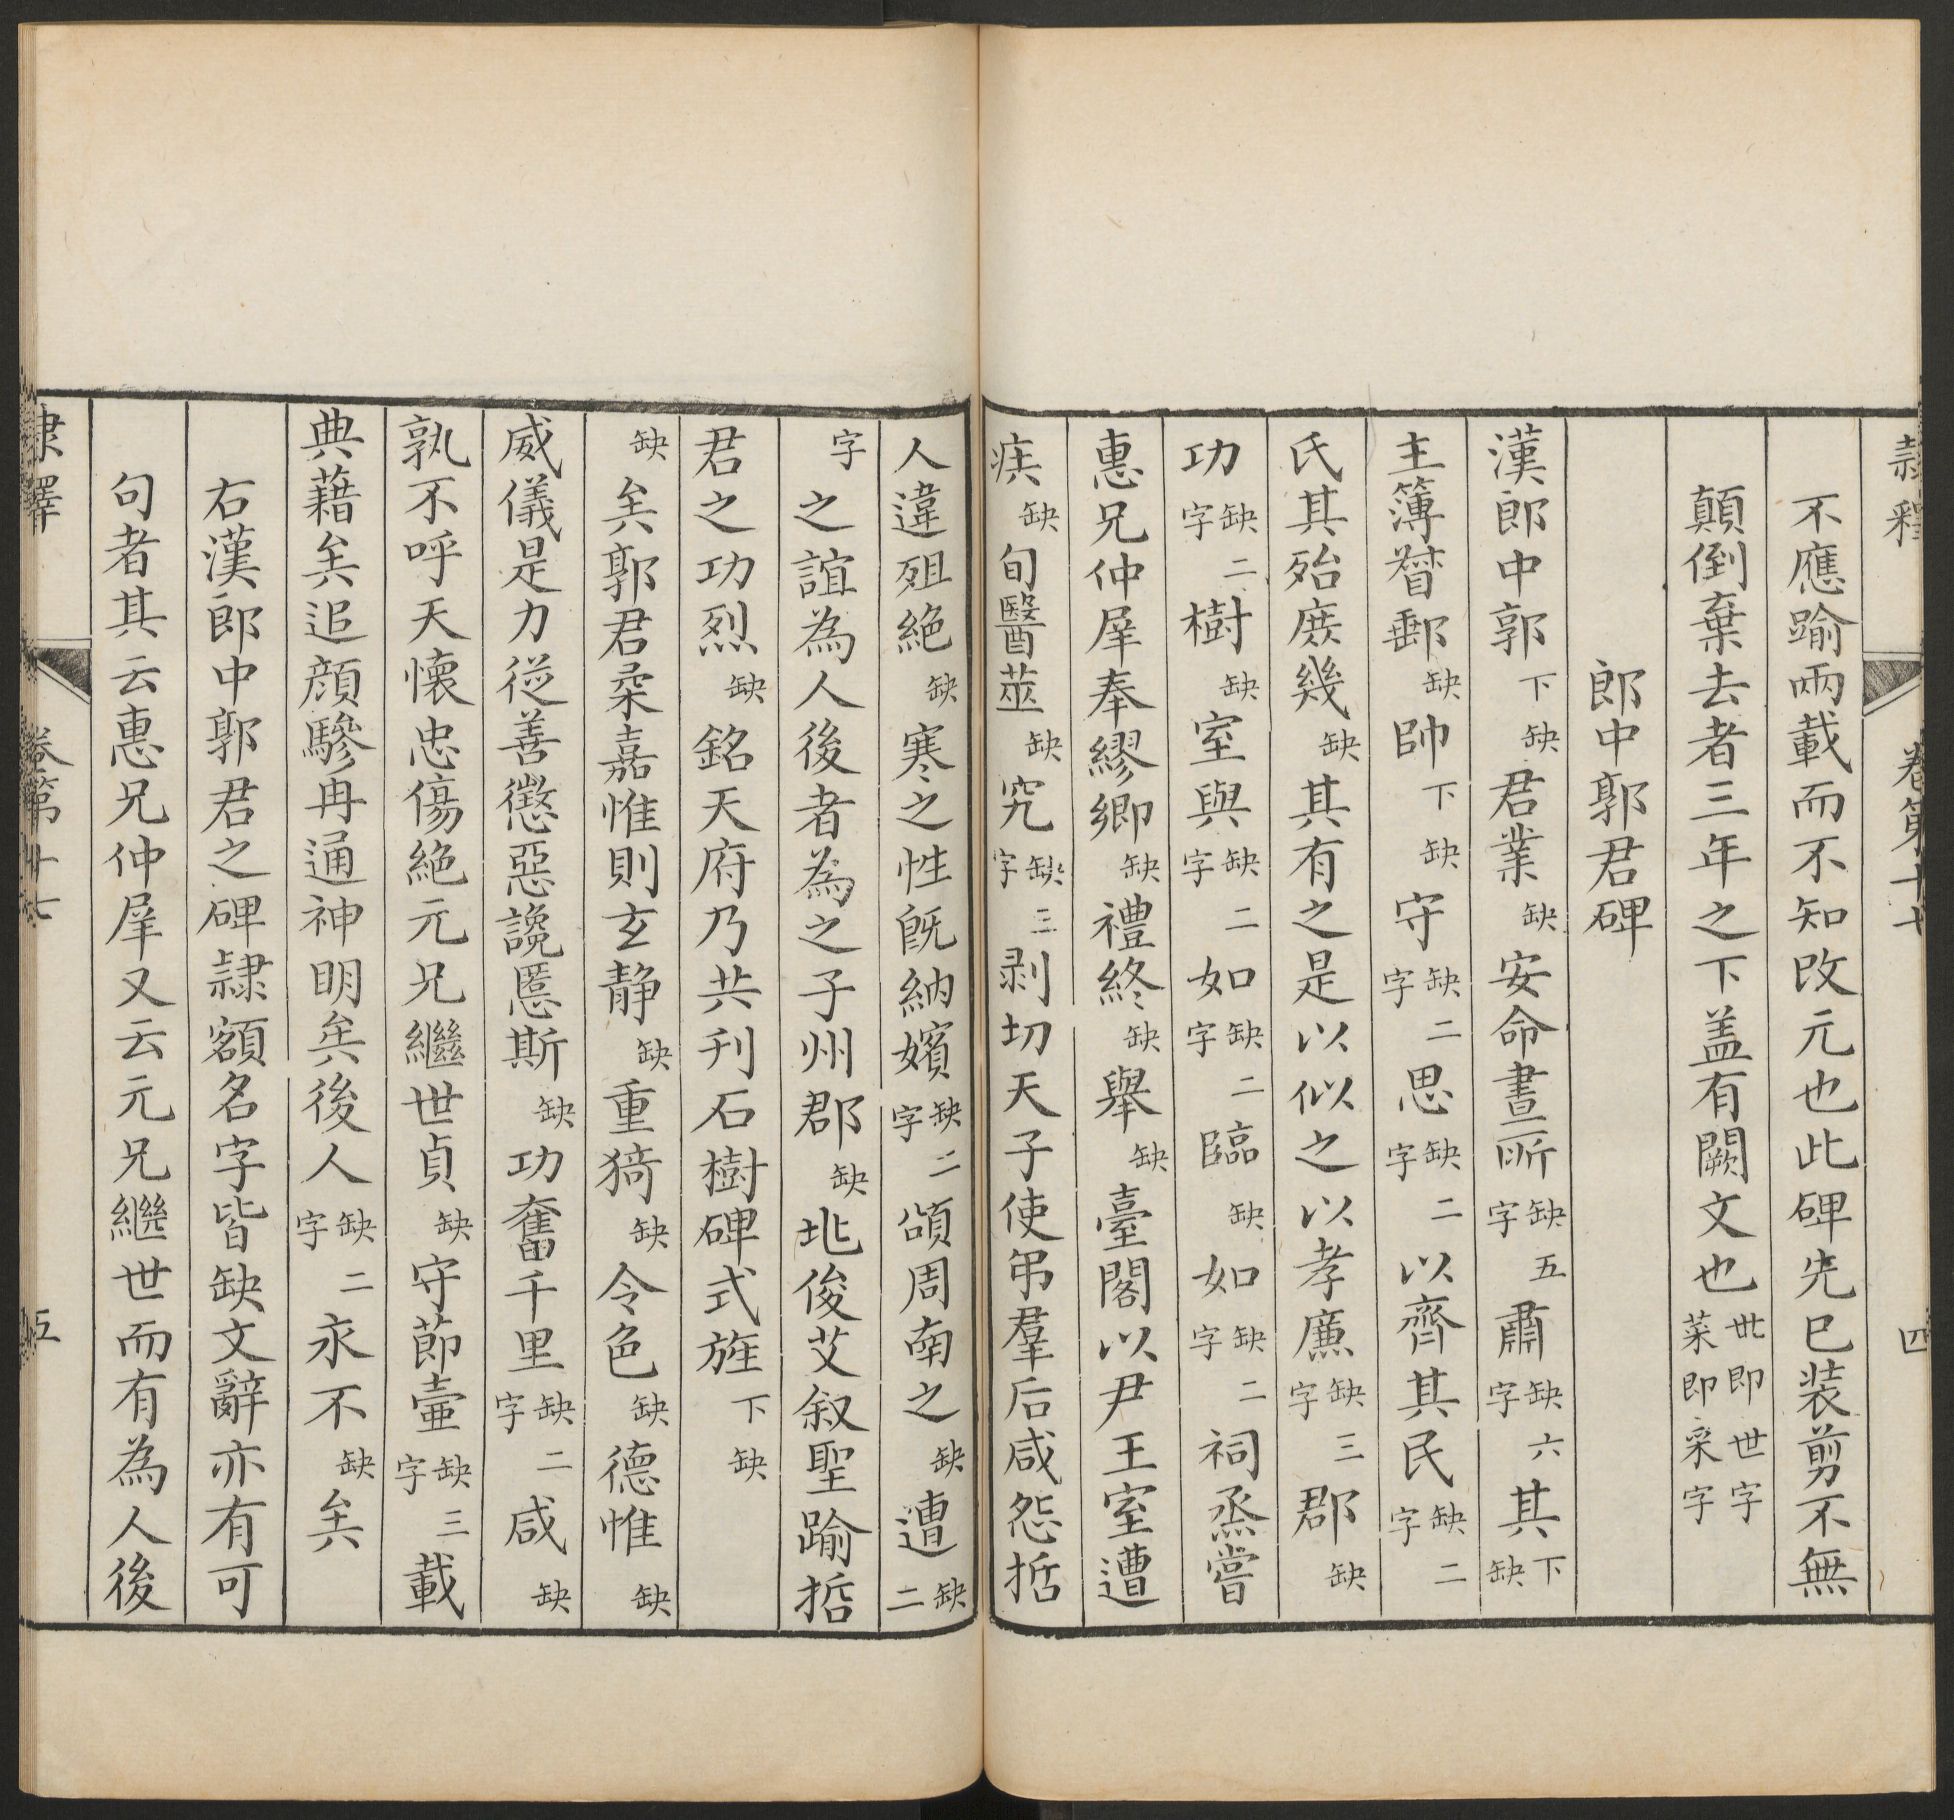 隷釋 卷第十七 四
不應踰兩載而不知改元也此碑先已装剪不無
顛倒棄去者三年之下盖有闕文也丗即世字菜即采字
郎中郭君碑
漢郎中郭下缺君業缺安命晝所缺五字肅缺六字其下缺
主簿督郵缺帥下缺守缺二字思缺二字以齊其民缺二字
氏其殆庶幾缺其有之是以似之以孝廉缺三字郡缺
功缺二字樹缺室與缺二字如缺二字臨缺如缺二字祠烝嘗
惠兄仲犀奉繆卿缺禮終缺舉缺臺閣以尹王室遭
疾缺旬醫莁缺究缺三字剥切天子使弔羣后咸怨𢪛
人違殂絶缺寒之性旣納嬪缺二字頌周南之缺遭缺二
字之誼為人後者為之子州郡缺北俊艾叙聖踰𢪛
君之功烈缺銘天府乃共刋石樹碑式旌下缺
缺矣郭君柔嘉惟則玄静缺重猗缺令色缺德惟缺
威儀是力從善懲惡讒慝斯缺功奮千里缺二字咸缺
孰不呼天懷忠傷絶元兄繼世貞缺守節壷缺三字載
典藉矣追顔驂冉通神明矣後人缺二字永不缺矣
右漢郎中郭君之碑隷額名字皆缺文辭亦有可
句者其云惠兄仲犀又云元兄繼世而有為人後
隷釋 卷第十七 五